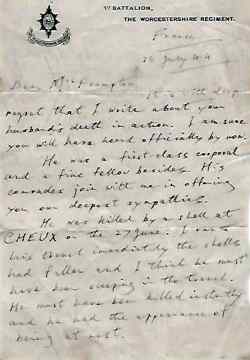 1st BATTALION,
THE WORCESTERSHIRE REGIMENT.
France
26 July 44
Dear Mrs Frampton
It is with deep
regret that I write about your
husband's death in action. I am sure
you will have heard officially by now.
He was a first class corporal
and a fine fellow besides. His
comrades join with me in offering
you our deepest sympathies.
He was killed by a shell at
CHEUX on the 27 June. I
him immediately the shells
had fallen and I think he must
have been sleeping in the trench.
He must have been killed instantly
and he had the appearance of
being at rest.